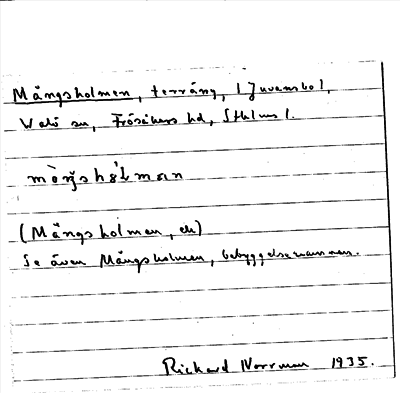 Mångsholmen, terräng, (Ljuvansbo),
Valö sn, Frösåkers hd, Sthlms l.
(Mångsholmen, en)
Se även Mångsholmen, bebyggelsenamnen.
Richard Norrman 1935.